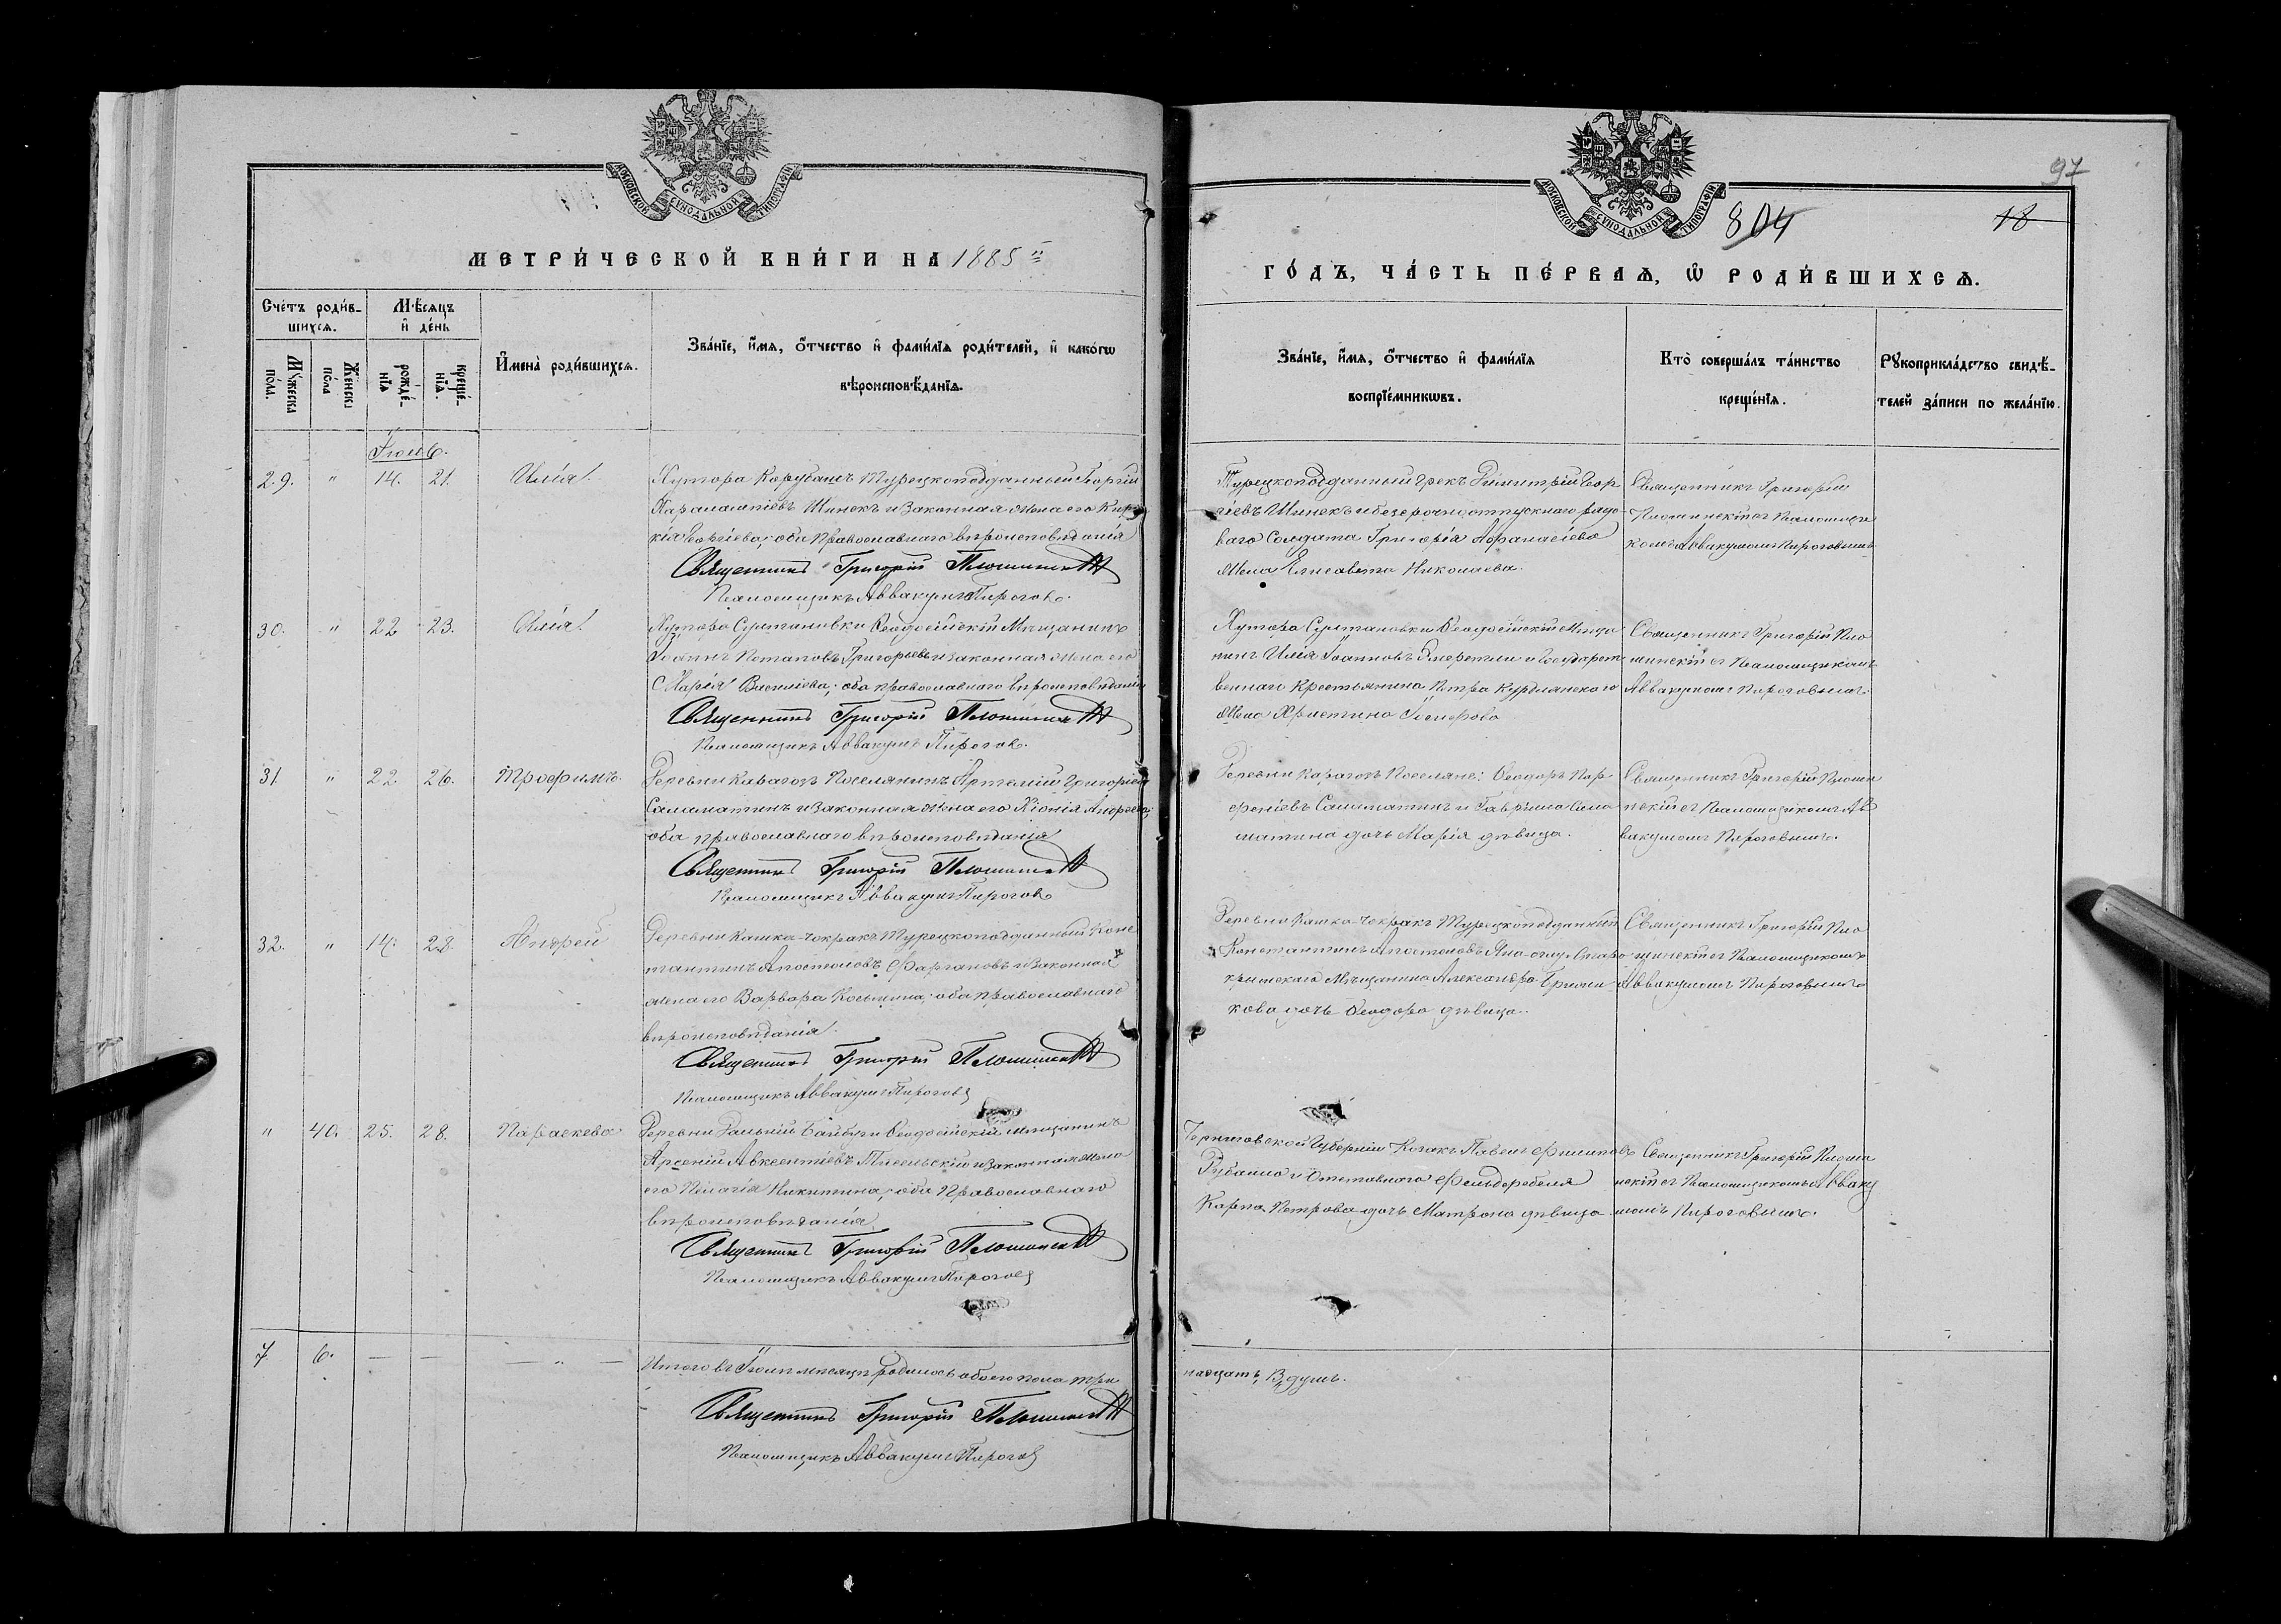 МОСКОВСКОЙ СѴНОДАЛЬНОЙ ТИПОГРАФІИ
МЕТРИ́ЧЕСКОЙ КНИ́ГИ НА 1885 й
Счетъ роди́в-
шихся.
Мѣсяцъ
и҆ де́нь
Мꙋжеска по́ла.
Же́нска по́ла
рожде́-
нїѧ
креще́-
нїѧ.
И҆мена̀ роди́вшихсѧ.
Зва́нїе, и҆́мѧ, ѻ҆́тчество и҆ фами́лїѧ роди́телей, и҆ како́гѡ
вѣроисповѣ́данїѧ.
Іюль.
29. " 14. 21. Илія.
Хутора Карубашъ Турецкоподданный Георгій
Харалампіевъ Шинекъ и законная жена его Кирь
кія Георгіева, оба православнаго вѣроисповѣданія
Священникъ Григорій
Псаломщикъ Аввакумъ Пироговъ.
30. " 22 23. Илія.
Хутора Султановки Ѳеодосійскій Мѣщанинъ
Іоаннъ Потаповъ Григорьевъ и законная жена его
Марія Васильева, оба православнаго вѣроисповѣданія
Священникъ Григорій
Псаломщикъ Аввакумъ Пироговъ.
31 " 22 26. Трофимъ.
Деревни Карагозъ Поселянинъ Артемій Григорьевъ
Саламатинъ и законная жена его Андреева;
оба православнаго вѣроисповѣданія
Священникъ Григорій
Псаломщикъ Аввакумъ Пироговъ
32. " 14. 28. Андрей
Деревни Кашка-Чокракъ Турецкоподданный Конс
тантинъ Апостоловъ и законная
жена его Варвара Косьмина, оба православнаго
вѣроисповѣданія.
Священникъ Григорій
Псаломщикъ Аввакумъ Пироговъ
" 40. 25. 28. Параскева
Деревни Дальній Байбуги Ѳеодосійскій мѣщанинъ
Арсеній Авксентіевъ и законная жена
его Пелагія Никитина, оба Православнаго
вѣроисповѣданія.
Священникъ Григорій
Псаломщикъ Аввакумъ Пироговъ
7. 6. — — — " —
Итого въ Іюлѣ мѣсяцѣ родилось обоего пола три
Священникъ Григорій
Псаломщикъ Аввакумъ Пироговъ
97
МОСКОВСКОЙ СѴНОДАЛЬНОЙ ТИПОГРАФІИ
804 18
ГО́ДЪ, ЧА́СТЬ ПЕ́РВАѦ, Ѡ҆ РОДИ́ВШИХСѦ.
Зва́нїе, и҆́мѧ, ѻ҆́тчество и҆ фами́лїѧ
воспрїе́мникѡвъ.
Кто̀ соверша́лъ та́инство
креще́нїѧ.
Рꙋкоприкла́дство свидѣ́-
телей за́писи по жела́нїю.
Турецкоподданный грекъ Димитрій Геор
гіевъ Шинекъ и безсрочноотпускнаго рядо
ваго Солдата Григорія Афанасіева
жена Елисавета Николаева.
Священникъ Григорій
съ Псаломщи
комъ Аввакумомъ Пироговымъ
Хутора Султановки Ѳеодосійскій Мѣща
нинъ Илія Іоанновъ и Государст
веннаго Крестьянина Петра Курдлянскаго
жена Христина
Священникъ Григорій
съ Псаломщикомъ
Аввакумомъ Пироговымъ.
Деревни Карагозъ Поселяне: Ѳеодоръ Пар
феніевъ Саламатинъ и Гавріила Сала
матина дочь Марія дѣвица.
Священникъ Григорій
съ Псаломщикомъ Ав
вакумомъ Пироговымъ.
Деревни Кашка-Чокракъ Турецкоподданный
Константинъ Апостоловъ и Старо
крымскаго Мѣщанина Александра
кова дочь Ѳеодора дѣвица.
Священникъ Григорій
съ Псаломщикомъ
Аввакумомъ Пироговымъ
Черниговской Губерніи Козакъ Павелъ Филиповъ
и Отставнаго Фельдфебеля
Карпа Петрова дочь Матрона дѣвица.
Священникъ Григорій
съ Псаломщикомъ Авваку
момъ Пироговымъ.
надцать, 13, душъ.